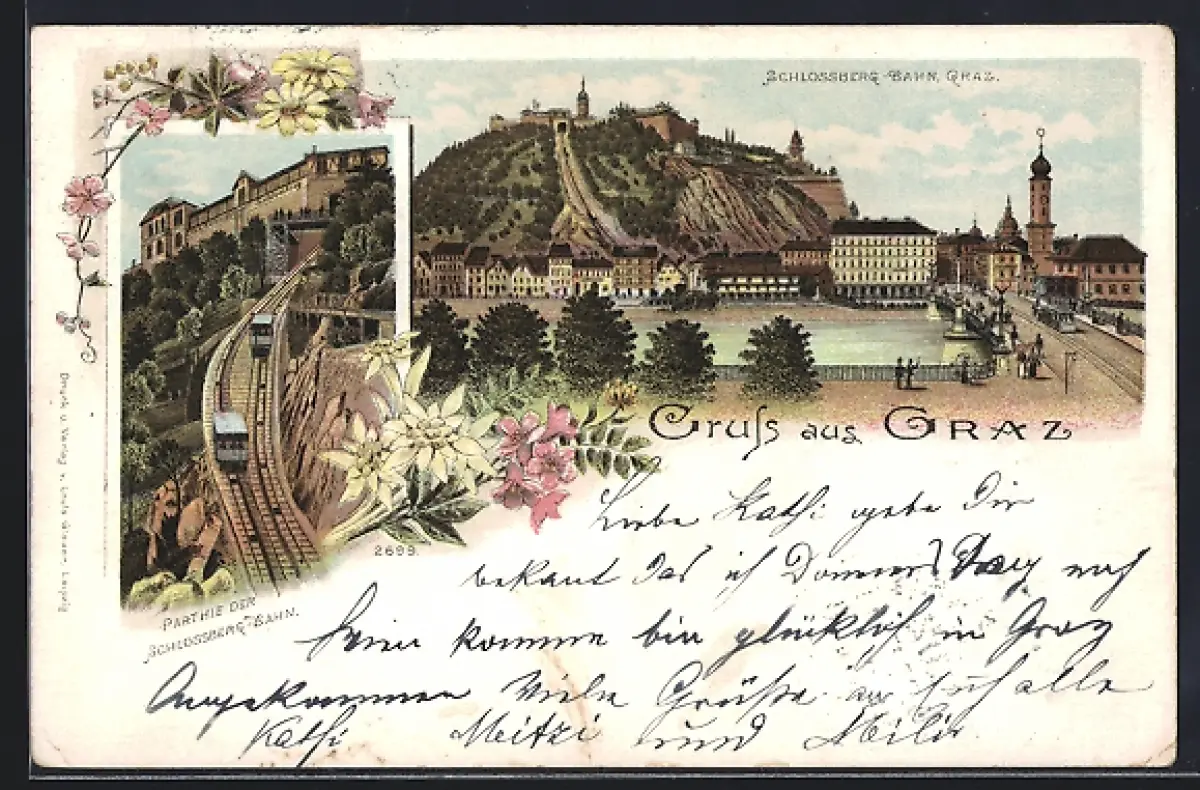 SCHLOSSBERG-BAHN, GRAZ.
Gruss aus GRAZ
2699.
PARTHIE DER
SCHLOSSBERG-BAHN.
Druck u. Verlag v. Louis Glaser, Leipzig
Liebe Kathi gebe Dir
bekant das ich Donners Tag nach
komme bin glücklich in Graz
Angekommen Viele Grüße an Euch alle
Kathi Meitzi und Milir